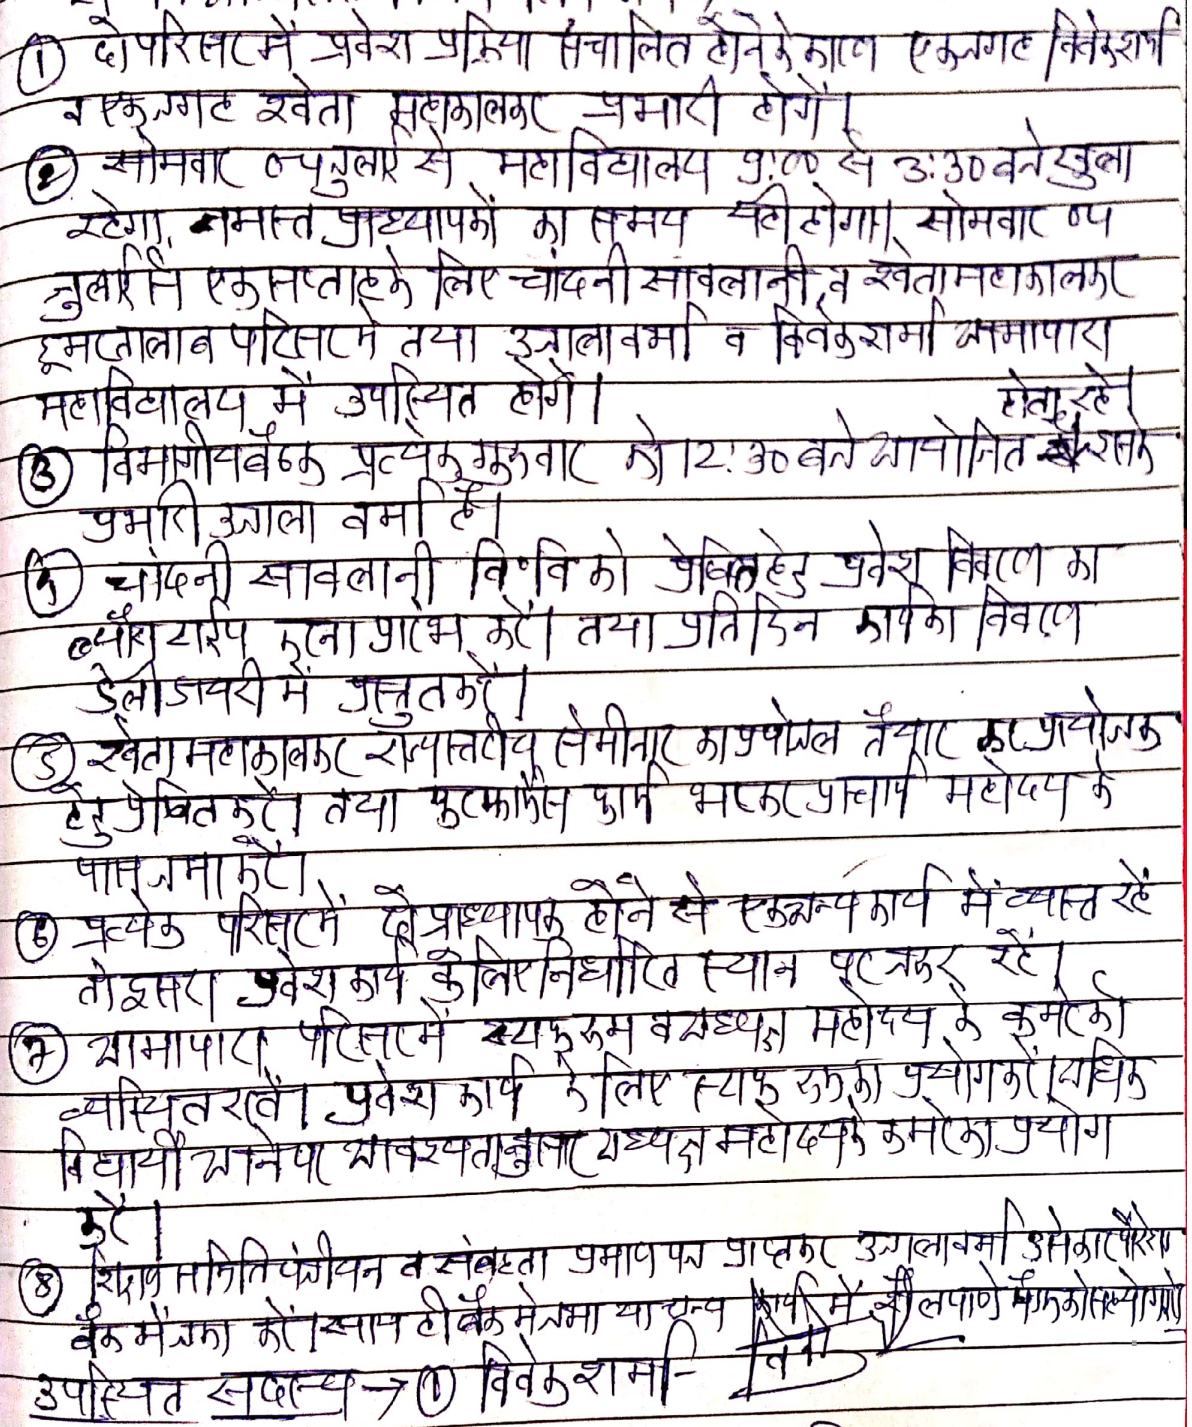 ① दो परिसर में प्रवेश प्रक्रिया संचालित होने के कारण एक जगह विवेक शर्मा
व एक जगह श्वेता महाकालकर प्रभारी होगें।
② सोमवार ०५ जुलाई से महाविद्यालय 9:00 से 3:30 बजे खुला
रहेगा, समस्त प्राध्यापकों का समय यही होगा। सोमवार ०५
जुलाई से एक सप्ताह के लिए चांदनी सावलानी व श्वेता महाकालकर
डूमरतालाब परिसर में तथा उजाला वर्मा व विवेक शर्मा आमापारा
महाविद्यालय में उपस्थित होगें।
③ विभागीय बैठक प्रत्येक गुरुवार को 12:30 बजे आयोजित होता रहे। इसके
प्रभारी उजाला वर्मा है।
चांदनी सावलानी वि.वि को प्रेषित हेतु प्रवेश विवरण का
ब्यौरा टाईप करना प्रारंभ करें। तथा प्रतिदिन कार्य का विवरण
डेली डायरी में प्रस्तुत करें।
⑤ श्वेता महाकालकर राज्यस्तरीय सेमीनार का प्रपोजल तैयार कर प्रायोजक
हेतु प्रेषित करें। तथा फार्म भरकर प्राचार्य महोदय के
पास जमा करें।
⑥ प्रत्येक परिसर में दो प्राध्यापक होने से एक अन्य कार्य में व्यस्त रहें
तो दूसरा प्रवेश कार्य के लिए निर्धारित स्थान पर जाकर रहें।
⑦ आमापारा परिसर में स्टाफ रूम व अध्यक्ष महोदय के कमरे को
व्यस्थित रखें। प्रवेश कार्य के लिए स्टाफ रुम का प्रयोग करें। अधिक
विद्यार्थी आने पर आवश्यतानुसार अध्यक्ष महोदय के कमरे का प्रयोग
करें।
⑧ शिक्षण समिति पंजीयन व संबद्धता प्रमाण पत्र प्राप्त कर उजाला वर्मा
बैंक में जमा करें। साथ ही बैंक में जमा या अन्य कार्य में
उपस्थित सदस्य → ① विवेक शर्मा -